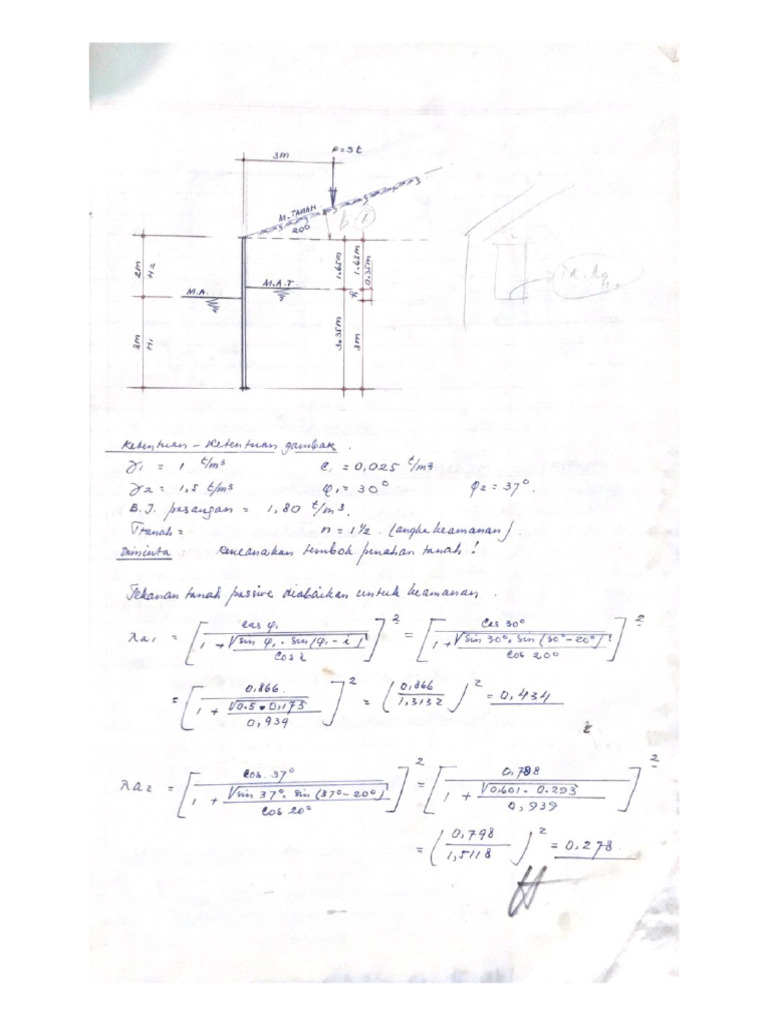 3m
P = 3t
M. TANAH
20°
2m
H2
M.A.
M.A.T
1.65m
1.65m
0.35m
3m
H1
3.35m
3m
Ketentuan - Ketentuan gambar.
γ1 = 1 t/m³ C1 = 0,025 t/m²
γ2 = 1,5 t/m³ φ1 = 30° φ2 = 37°.
B.J. pasangan = 1,80 t/m³.
Tanah = n = 1½. (angka keamanan).
Diminta : Rencanakan tembok penahan tanah!
Tekanan tanah passive diabaikan untuk keamanan.
λa1 = [ cos φ1 / (1 + √(sin φ1 · sin (φ1 - i)) / cos i) ]² = [ cos 30° / (1 + √(sin 30° · sin (30° - 20°)) / cos 20°) ]²
= [ 0,866 / (1 + √(0.5 · 0,173) / 0,939) ]² = ( 0,866 / 1,3132 )² = 0,434
λa2 = [ cos 37° / (1 + √(sin 37° · sin (37° - 20°)) / cos 20°) ]² = [ 0,798 / (1 + √(0.601 · 0.293) / 0,939) ]²
= ( 0,798 / 1,5118 )² = 0,278